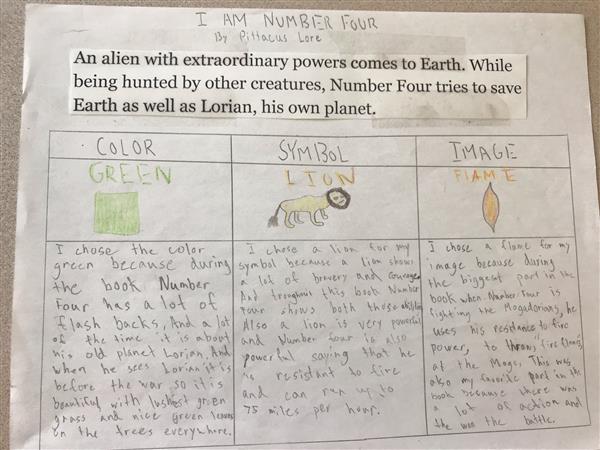 I AM NUMBER FOUR
By Pittacus Lore
An alien with extraordinary powers comes to Earth. While
being hunted by other creatures, Number Four tries to save
Earth as well as Lorian, his own planet.
COLOR
GREEN
I chose the color
green because during
the book Number
Four has a lot of
flash backs, And a lot
of the time it is about
his old planet Lorian, And
when he sees Lorian it is
before the war so it is
beautiful with lushest green
grass and nice green leaves
on the trees everywhere.
SYMBOL
LION
I chose a lion for my
symbol because a lion shows
a lot of bravery and courage
And troughout this book Number
four shows both those abilities
Also a lion is very powerful
and Number four is also
powerful saying that he
is resistant to fire
and can run up to
75 miles per hour.
IMAGE
FLAME
I chose a flame for my
image because during
the biggest part in the
book when Number Four is
fighting the Mogadorians, he
uses his resistance to fire
power, to throw fire
at the Mogs. This was
also my favorite part in the
book because there was
a lot of action and
the won the battle.